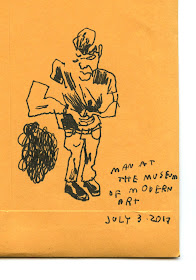 MAN AT
THE MUSEUM
OF MODERN
ART
JULY 3. 2017